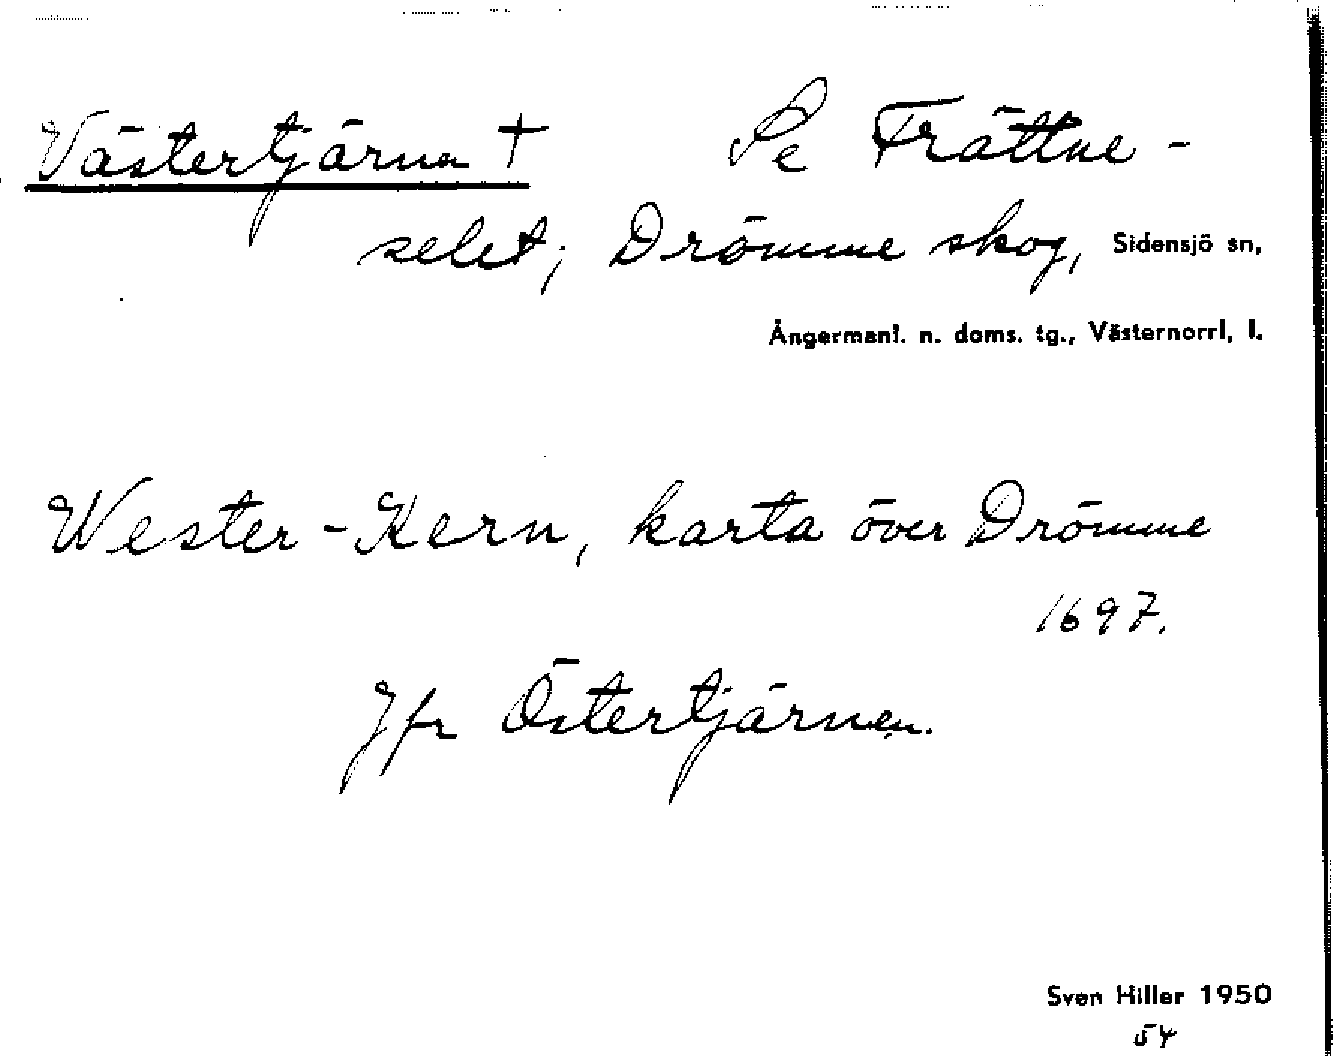 Västertjärnen † Se Frättne-
selet; Drömme skog, Sidensjö sn,
Ångermanl. n. doms. tg., Västernorrl, l.
Wester-Kern, karta över Drömme
1697.
Jfr Östertjärnen.
Sven Hiller 1950
54